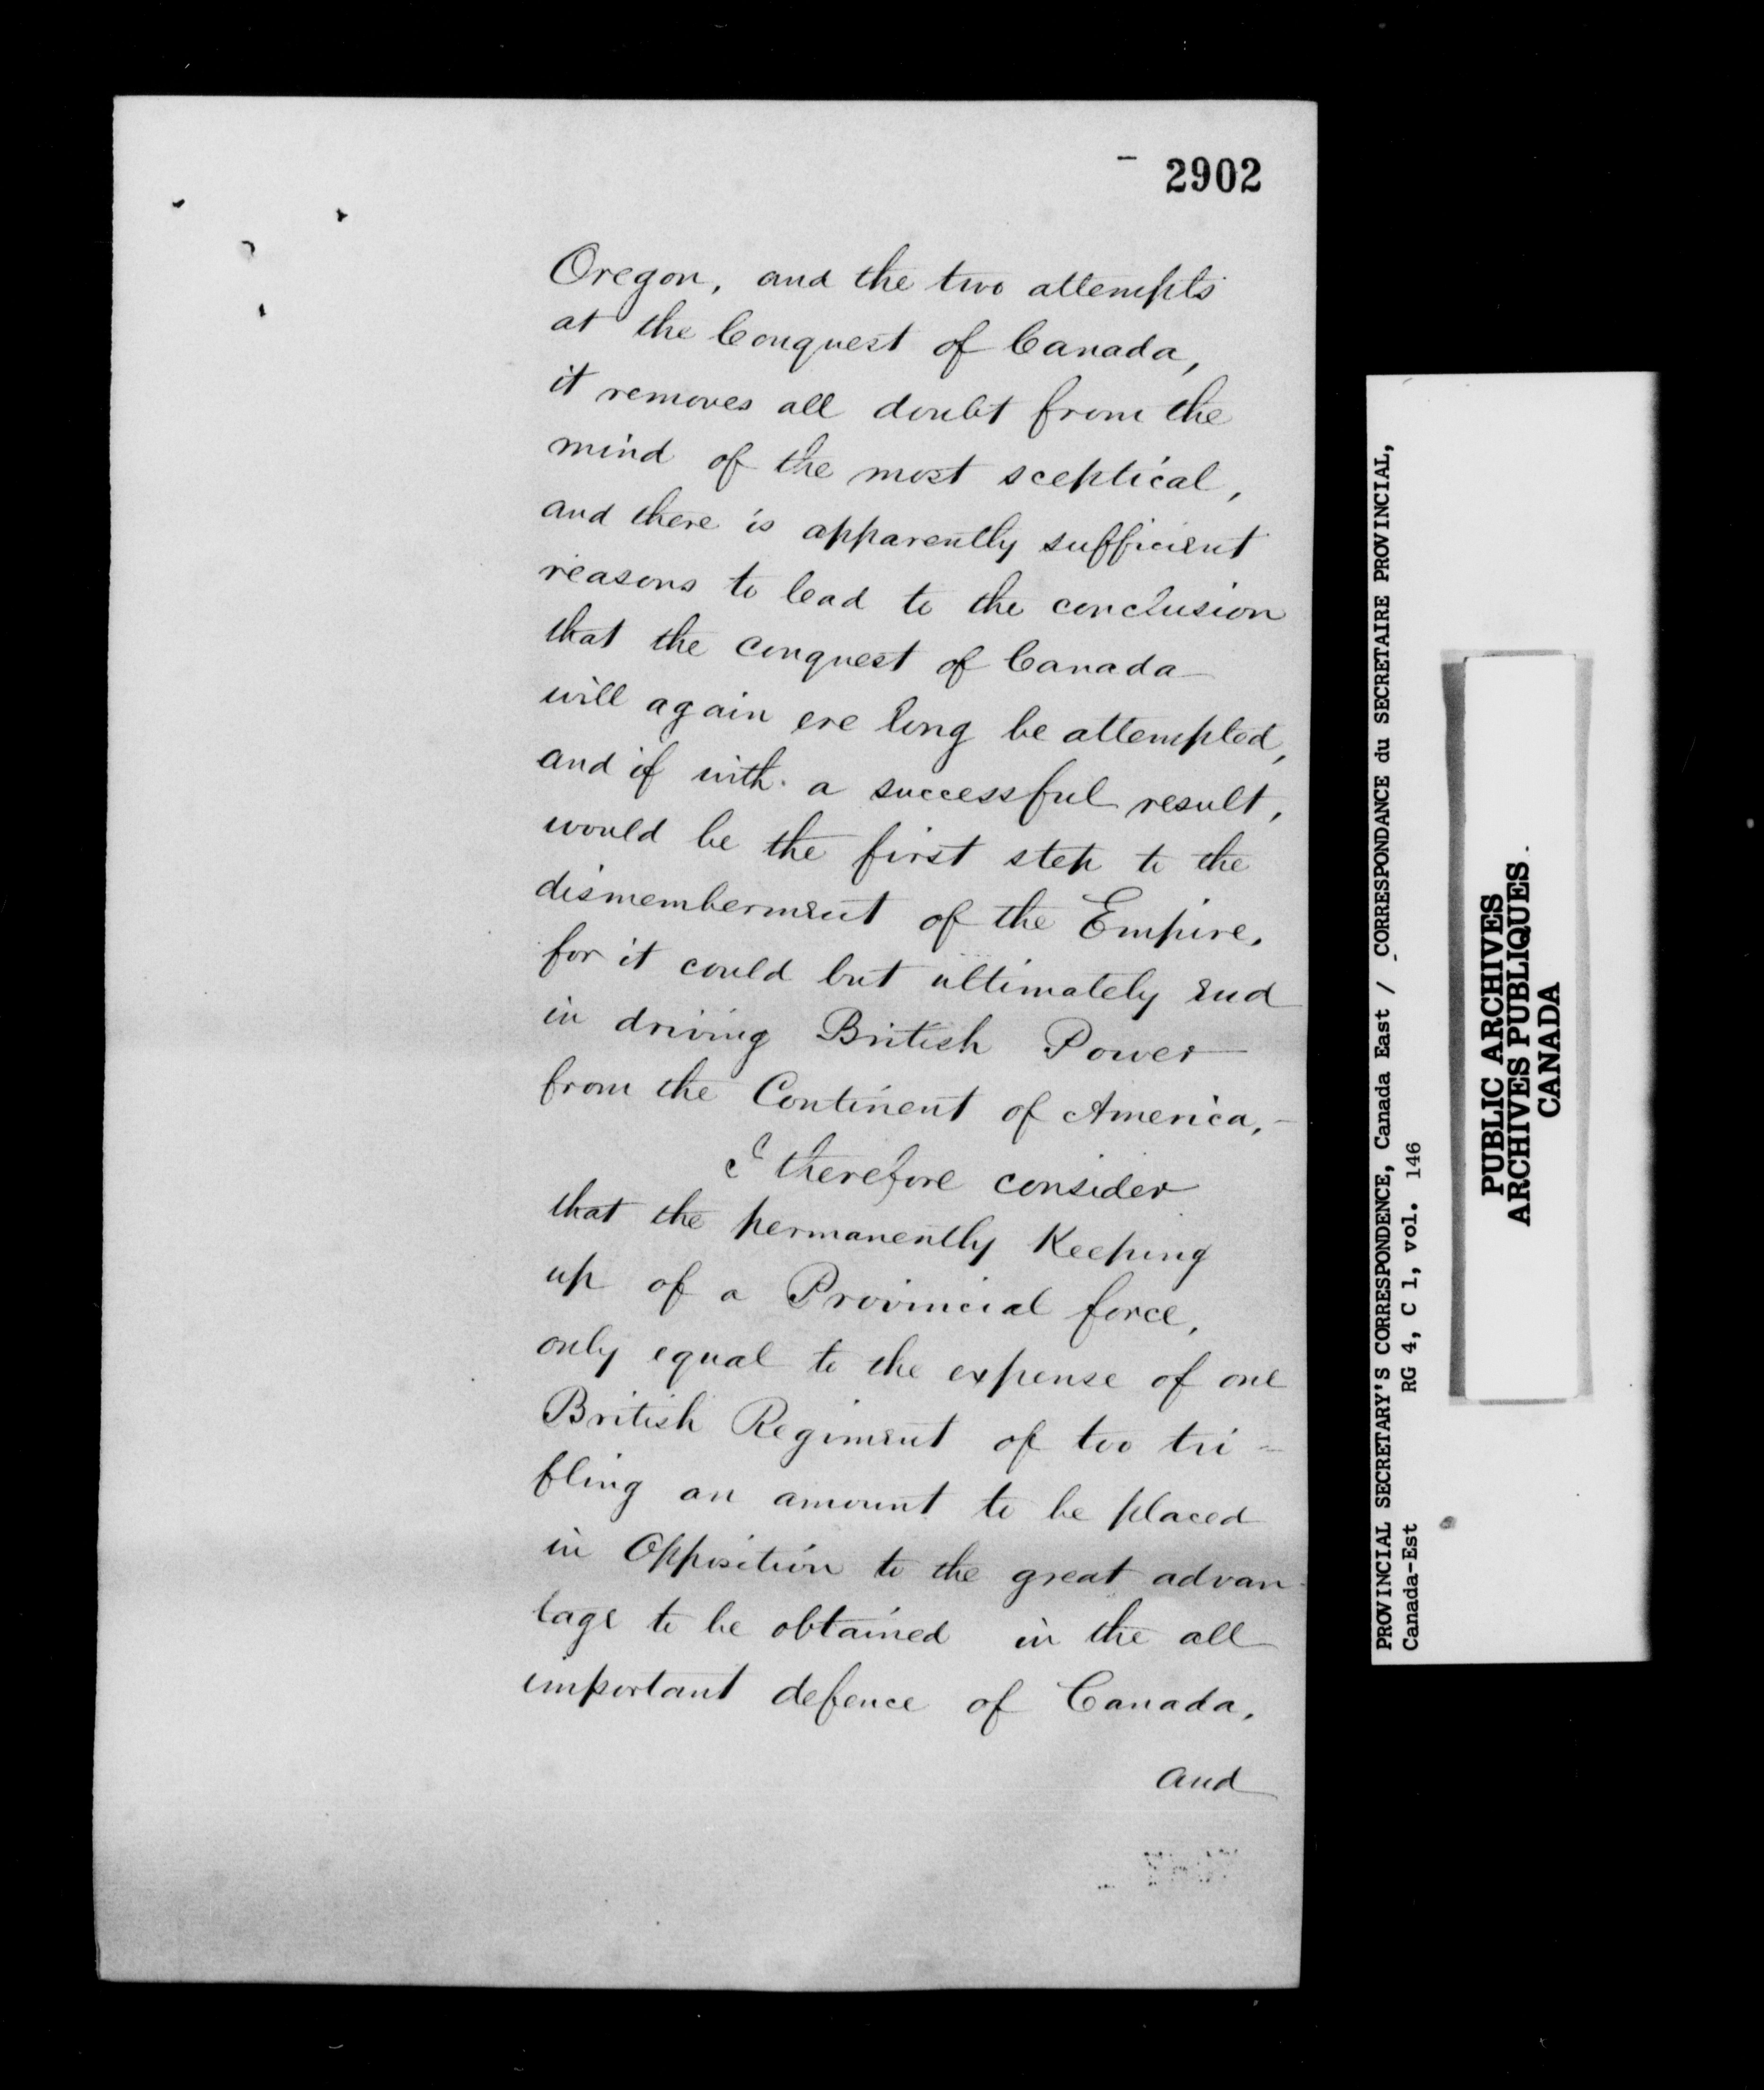 2902
Oregon, and the two attempts
at the Conquest of Canada,
it removes all doubt from the
mind of the most sceptical,
and there is apparently sufficient
reasons to lead to the conclusion
that the conquest of Canada
will again ere long be attempted,
and if with a successful result,
would be the first step to the
dismemberment of the Empire,
for it could but ultimately end
in driving British Power
from the Continent of America,-
I therefore consider
that the permanently Keeping
up of a Provincial force,
only equal to the expense of one
British Regiment of too tri-
fling an amount to be placed
in Opposition to the great advan-
tage to be obtained in the all
important defence of Canada,
and
PROVINCIAL SECRETARY'S CORRESPONDENCE, Canada East / CORRESPONDANCE du SECRETAIRE PROVINCIAL,
Canada-Est RG 4, C 1, vol. 146
PUBLIC ARCHIVES
ARCHIVES PUBLIQUES
CANADA